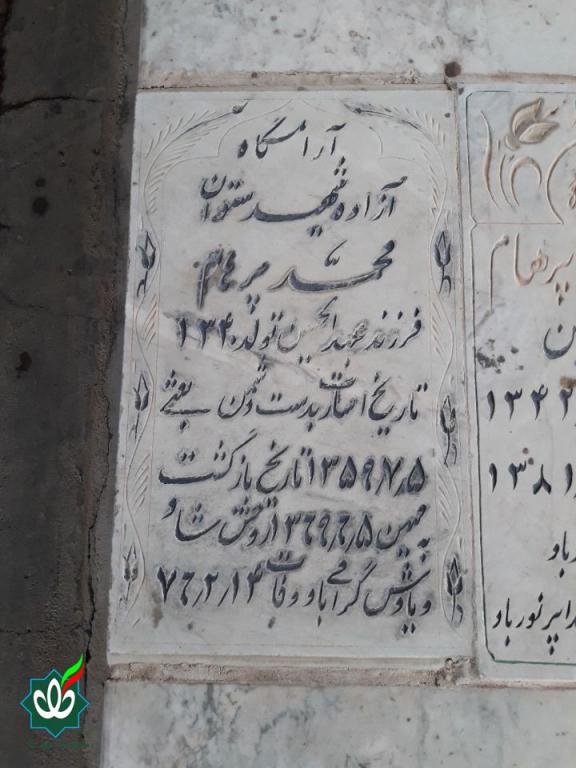 آرامگاه
آزاده شهید ستوان
محمد پرهام
فرزند عبدالحسین تولد ۱۳۴۰
تاریخ اسارت بدست دشمن بعثی
۱۳۵۹٫۷٫۵ تاریخ بازگشت
به میهن ۱۳۶۹٫۶٫۵ روحش شاد و
و یادش گرامی باد وفات ۷۶٫۲٫۱۴
پرهام
۱۳۴۲
۱۳۸۱
باد
پر نور باد